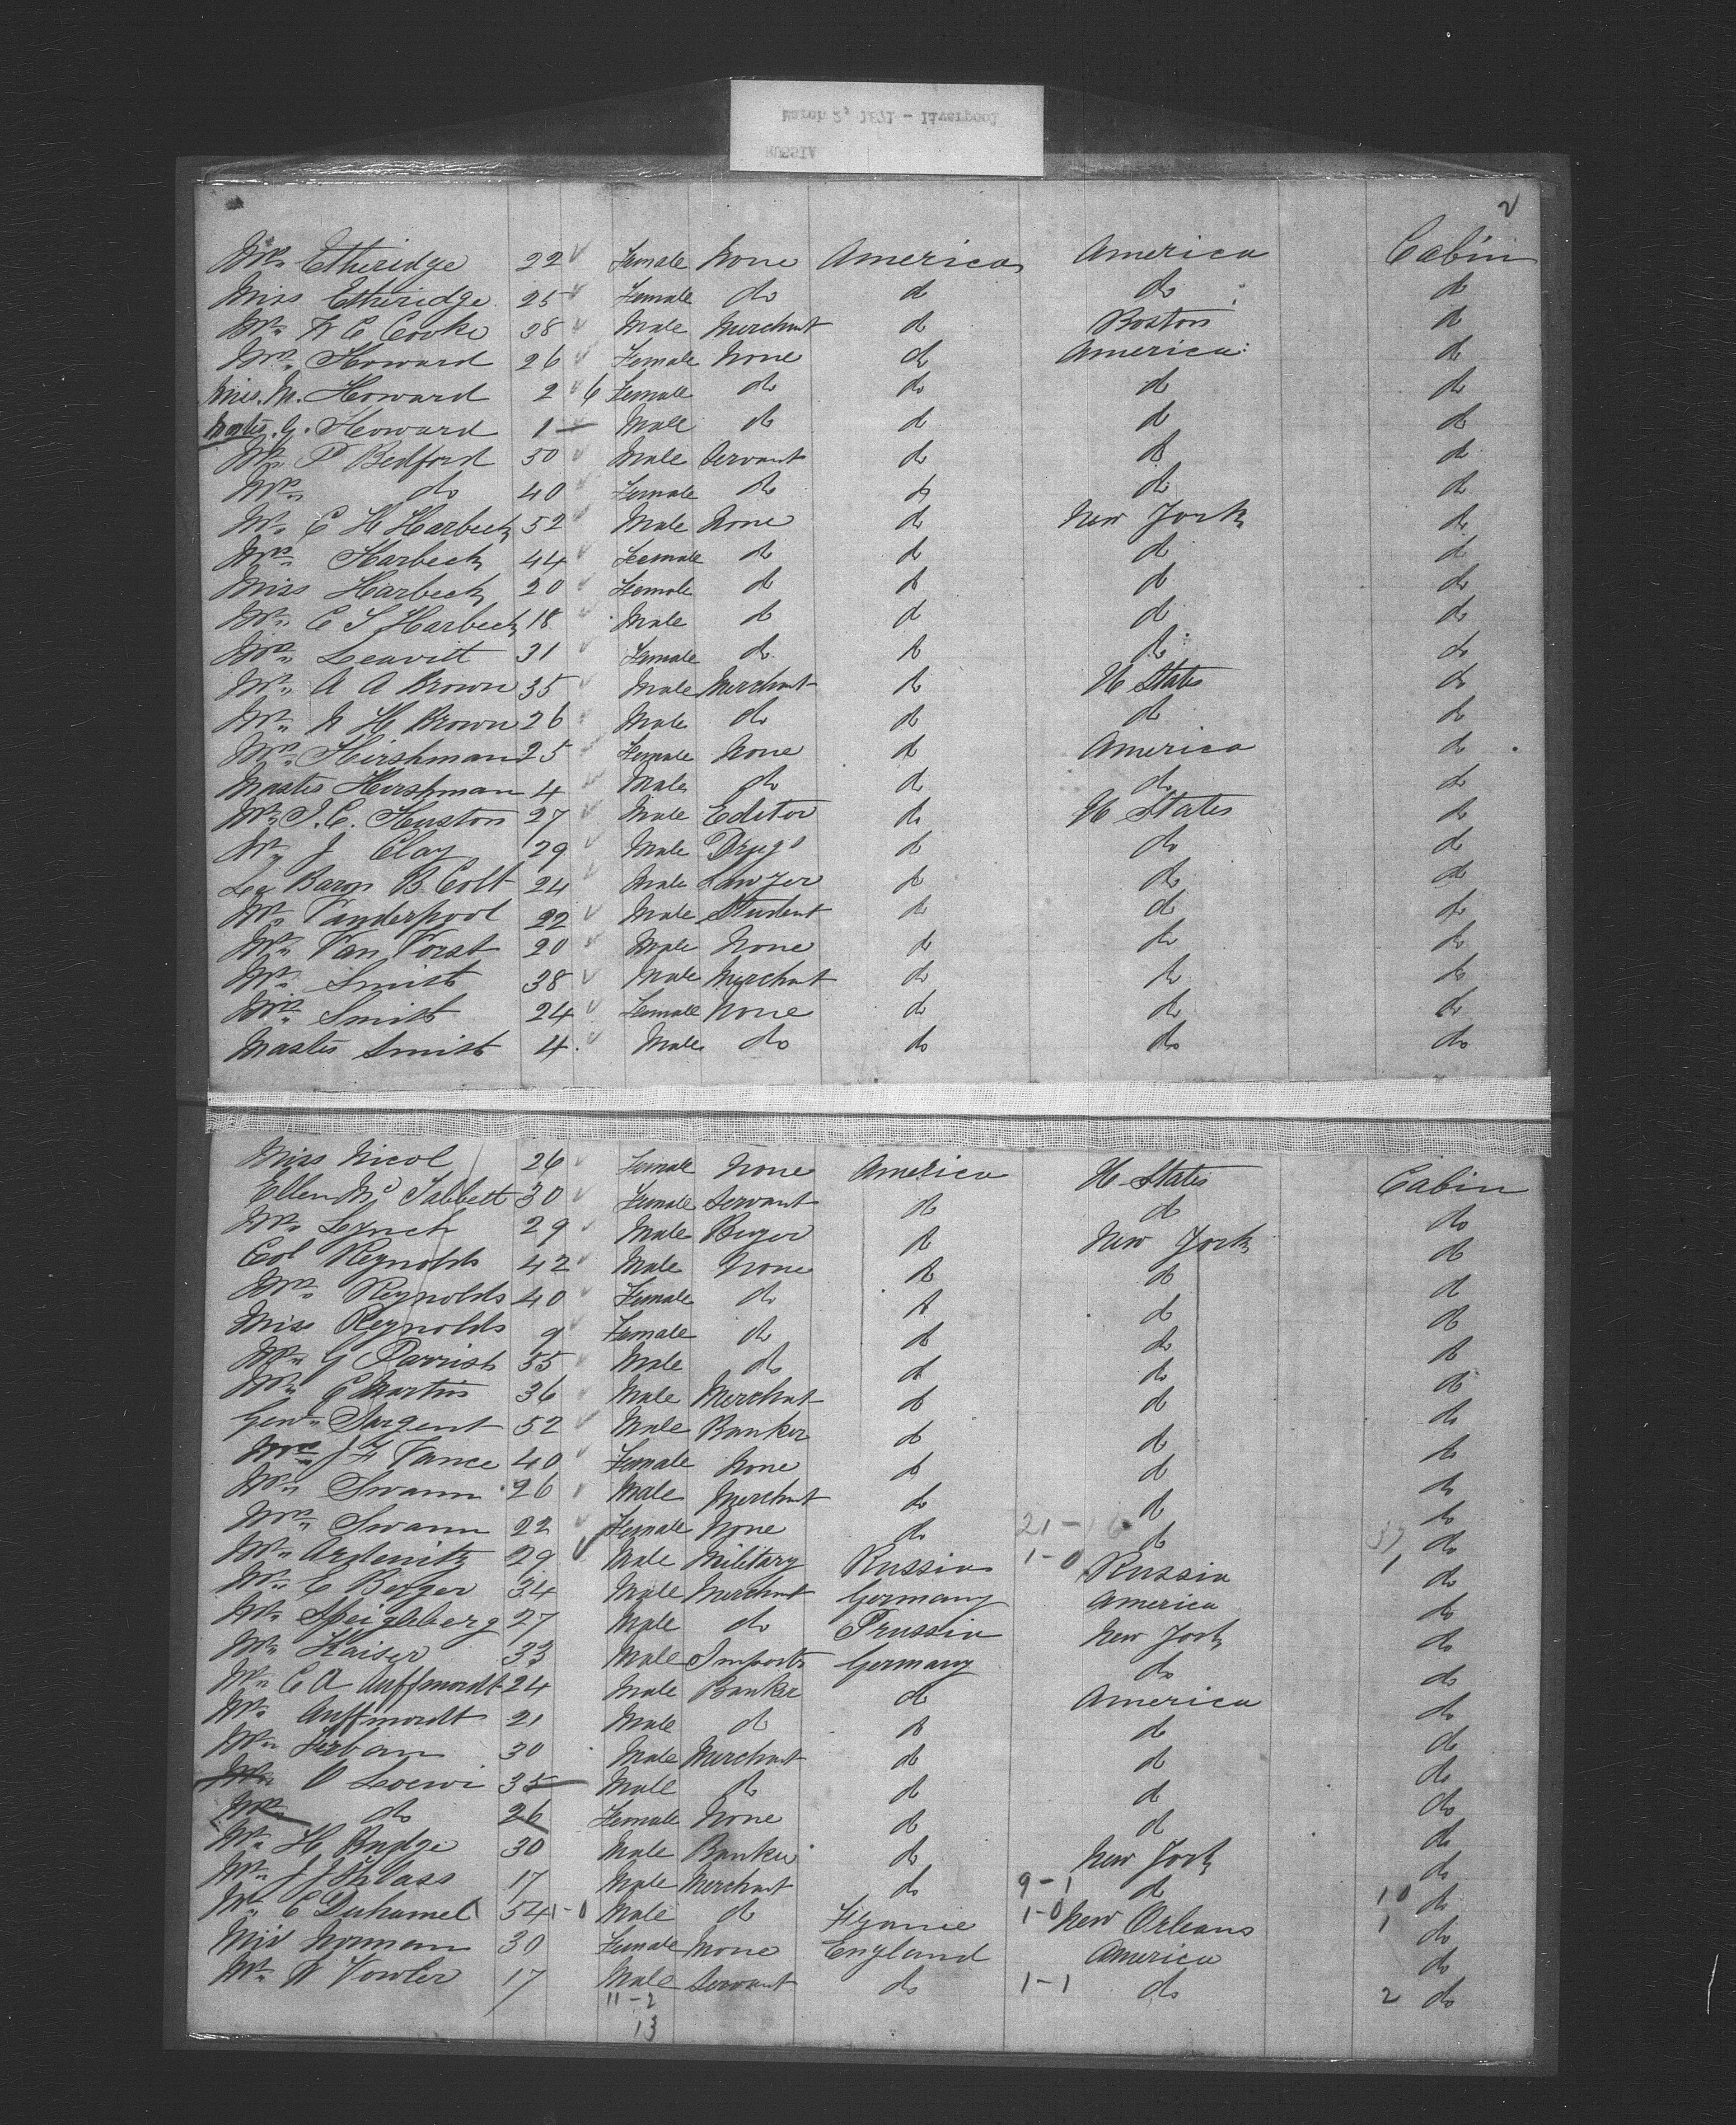 RUSSIA
March 2, 1871 - Liverpool
2
Mrs Etheridge 22 Female None America America Cabin
Miss Etheridge 25 Female do do do do
Mr W C Cooke 38 Male Merchant do Boston do
Mrs Howard 26 Female None do America do
Miss. M. Howard 2 6 Female do do do do
Master. G. Howard 1 Male do do do do
Mr P Bedford 50 Male Servant do do do
Mrs do 40 Female do do do do
Mr C H Harbeck 52 Male None do New York do
Mrs Harbeck 44 Feemale do do do do
Miss Harbeck 20 Female do do do do
Mr C T Harbeck 18 Male do do do do
Mrs Leavitt 31 Female do do do do
Mr A A Brown 35 Male Merchant do U States do
Mr N H Brown 26 Male do do do do
Mrs Hirshman 25 Female None do America do
Master Hirshman 4 Male do do do do
Mr J. C. Huston 27 Male Editor do U States do
Mr J Clay 29 Male Drugs do do do
Le Baron B Colt 24 Male Lawyer do do do
Mr Vanderpool 22 Male Student do do do
Mr Van Vorst 20 Male None do do do
Mr Smith 38 Male Merchant do do do
Mrs Smith 24 Female None do do do
Master Smith 4 Male do do do do
Miss Nicol 26 Female None America U States Cabin
Ellen Mc Tabbett 30 Female Servant do do do
Mr Lynch 29 Male Buyer do New York do
Col Reynolds 42 Male None do do do
Mrs Reynolds 40 Female do do do do
Miss Reynolds 9 Female do do do do
Mr G Parrish 55 Male do do do do
Mr C Martin 36 Male Merchant do do do
Genl Sargent 52 Male Banker do do do
Mrs J F Vance 40 Female None do do do
Mr Swann 26 Male Merchant do do do
Mrs Swann 22 Female None do 21-16 do do
Mr 29 Male Military Russia 1-0 Russia 1 do
Mr C Berger 34 Male Merchant Germany America do
Mr Speigleberg 27 Male do Prussia New York do
Mr Kaiser 33 Male Imports Germany do do
Mr C A Auffmordt 24 Male Banker do America do
Mr Auffmordt 21 Male do do do do
Mr Ferban 30 Male Merchant do do do
Mr O Loewi 35 Male do do do do
Mrs do 26 Female None do do do
Mr H Budge 30 Male Banker do New York do
Mr J J 17 Male Merchant do 9-1 do 10 do
Mr C Duhamel 54 1-0 Male do France 1-0 New Orleans 1 do
Miss Norman 30 Female None England America do
Mr W Vowler 17 Male Servant do 1-1 do 2 do
11-2
13